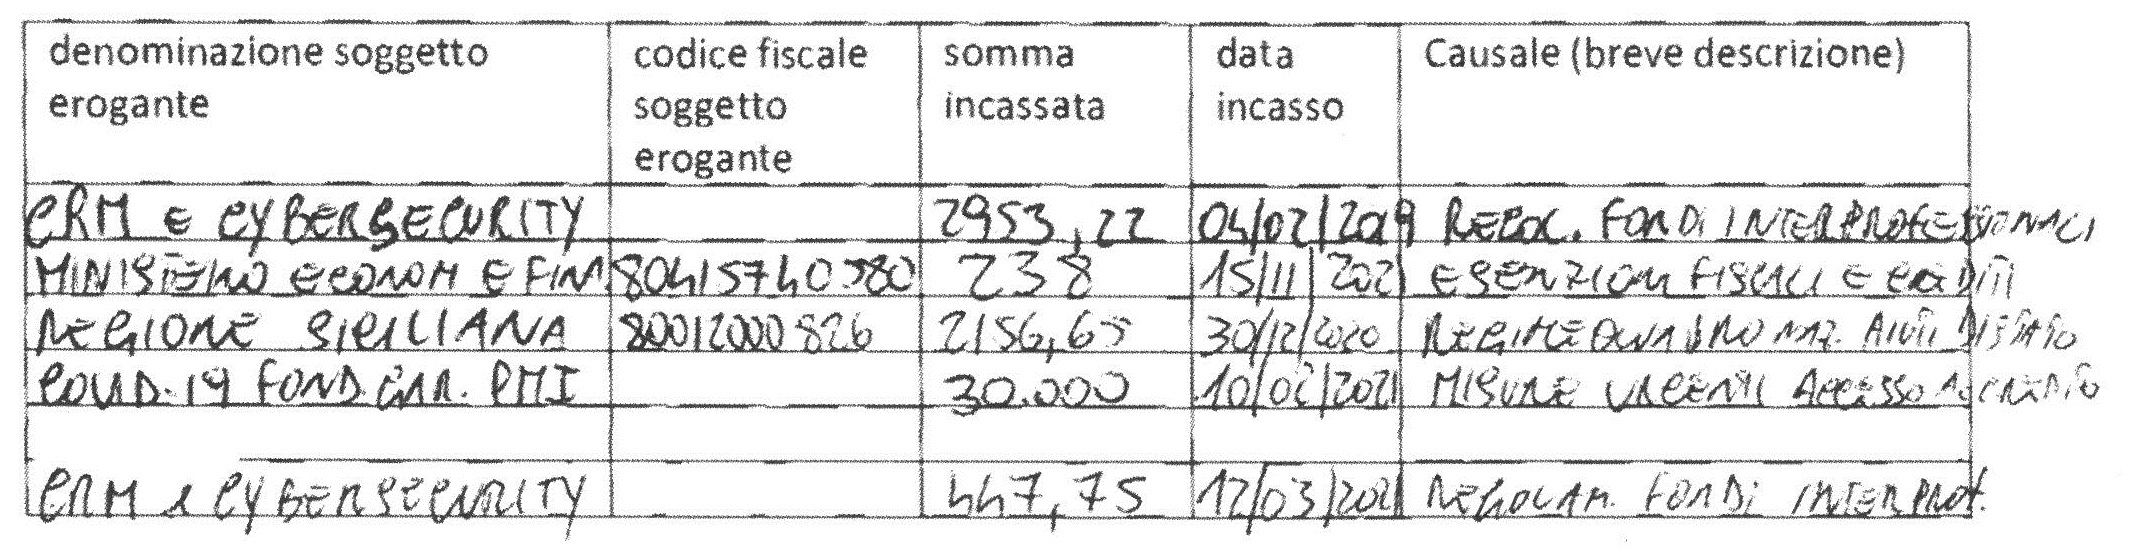 denominazione soggetto erogante | codice fiscale soggetto erogante | somma incassata | data incasso | Causale (breve descrizione)
CRM E CYBERSECURITY | | 2953,22 | 04/02/2019 | REGOL. FONDI INTERPROFESSIONALI
MINISTERO ECONOM E FIN. | 80415740580 | 238 | 15/11/2021 | ESENZIONI FISCALI E CREDITI
REGIONE SICILIANA | 80012000826 | 2156,65 | 30/12/2020 | REGIME QUADRO NAZ. AIUTI DI STATO
COVID-19 FOND. GAR. PMI | | 30.000 | 10/02/2021 | MISURE URGENTI ACCESSO AL CREDITO
CRM e CYBERSECURITY | | 447,75 | 12/03/2021 | REGOLAM. FONDI INTERPROF.